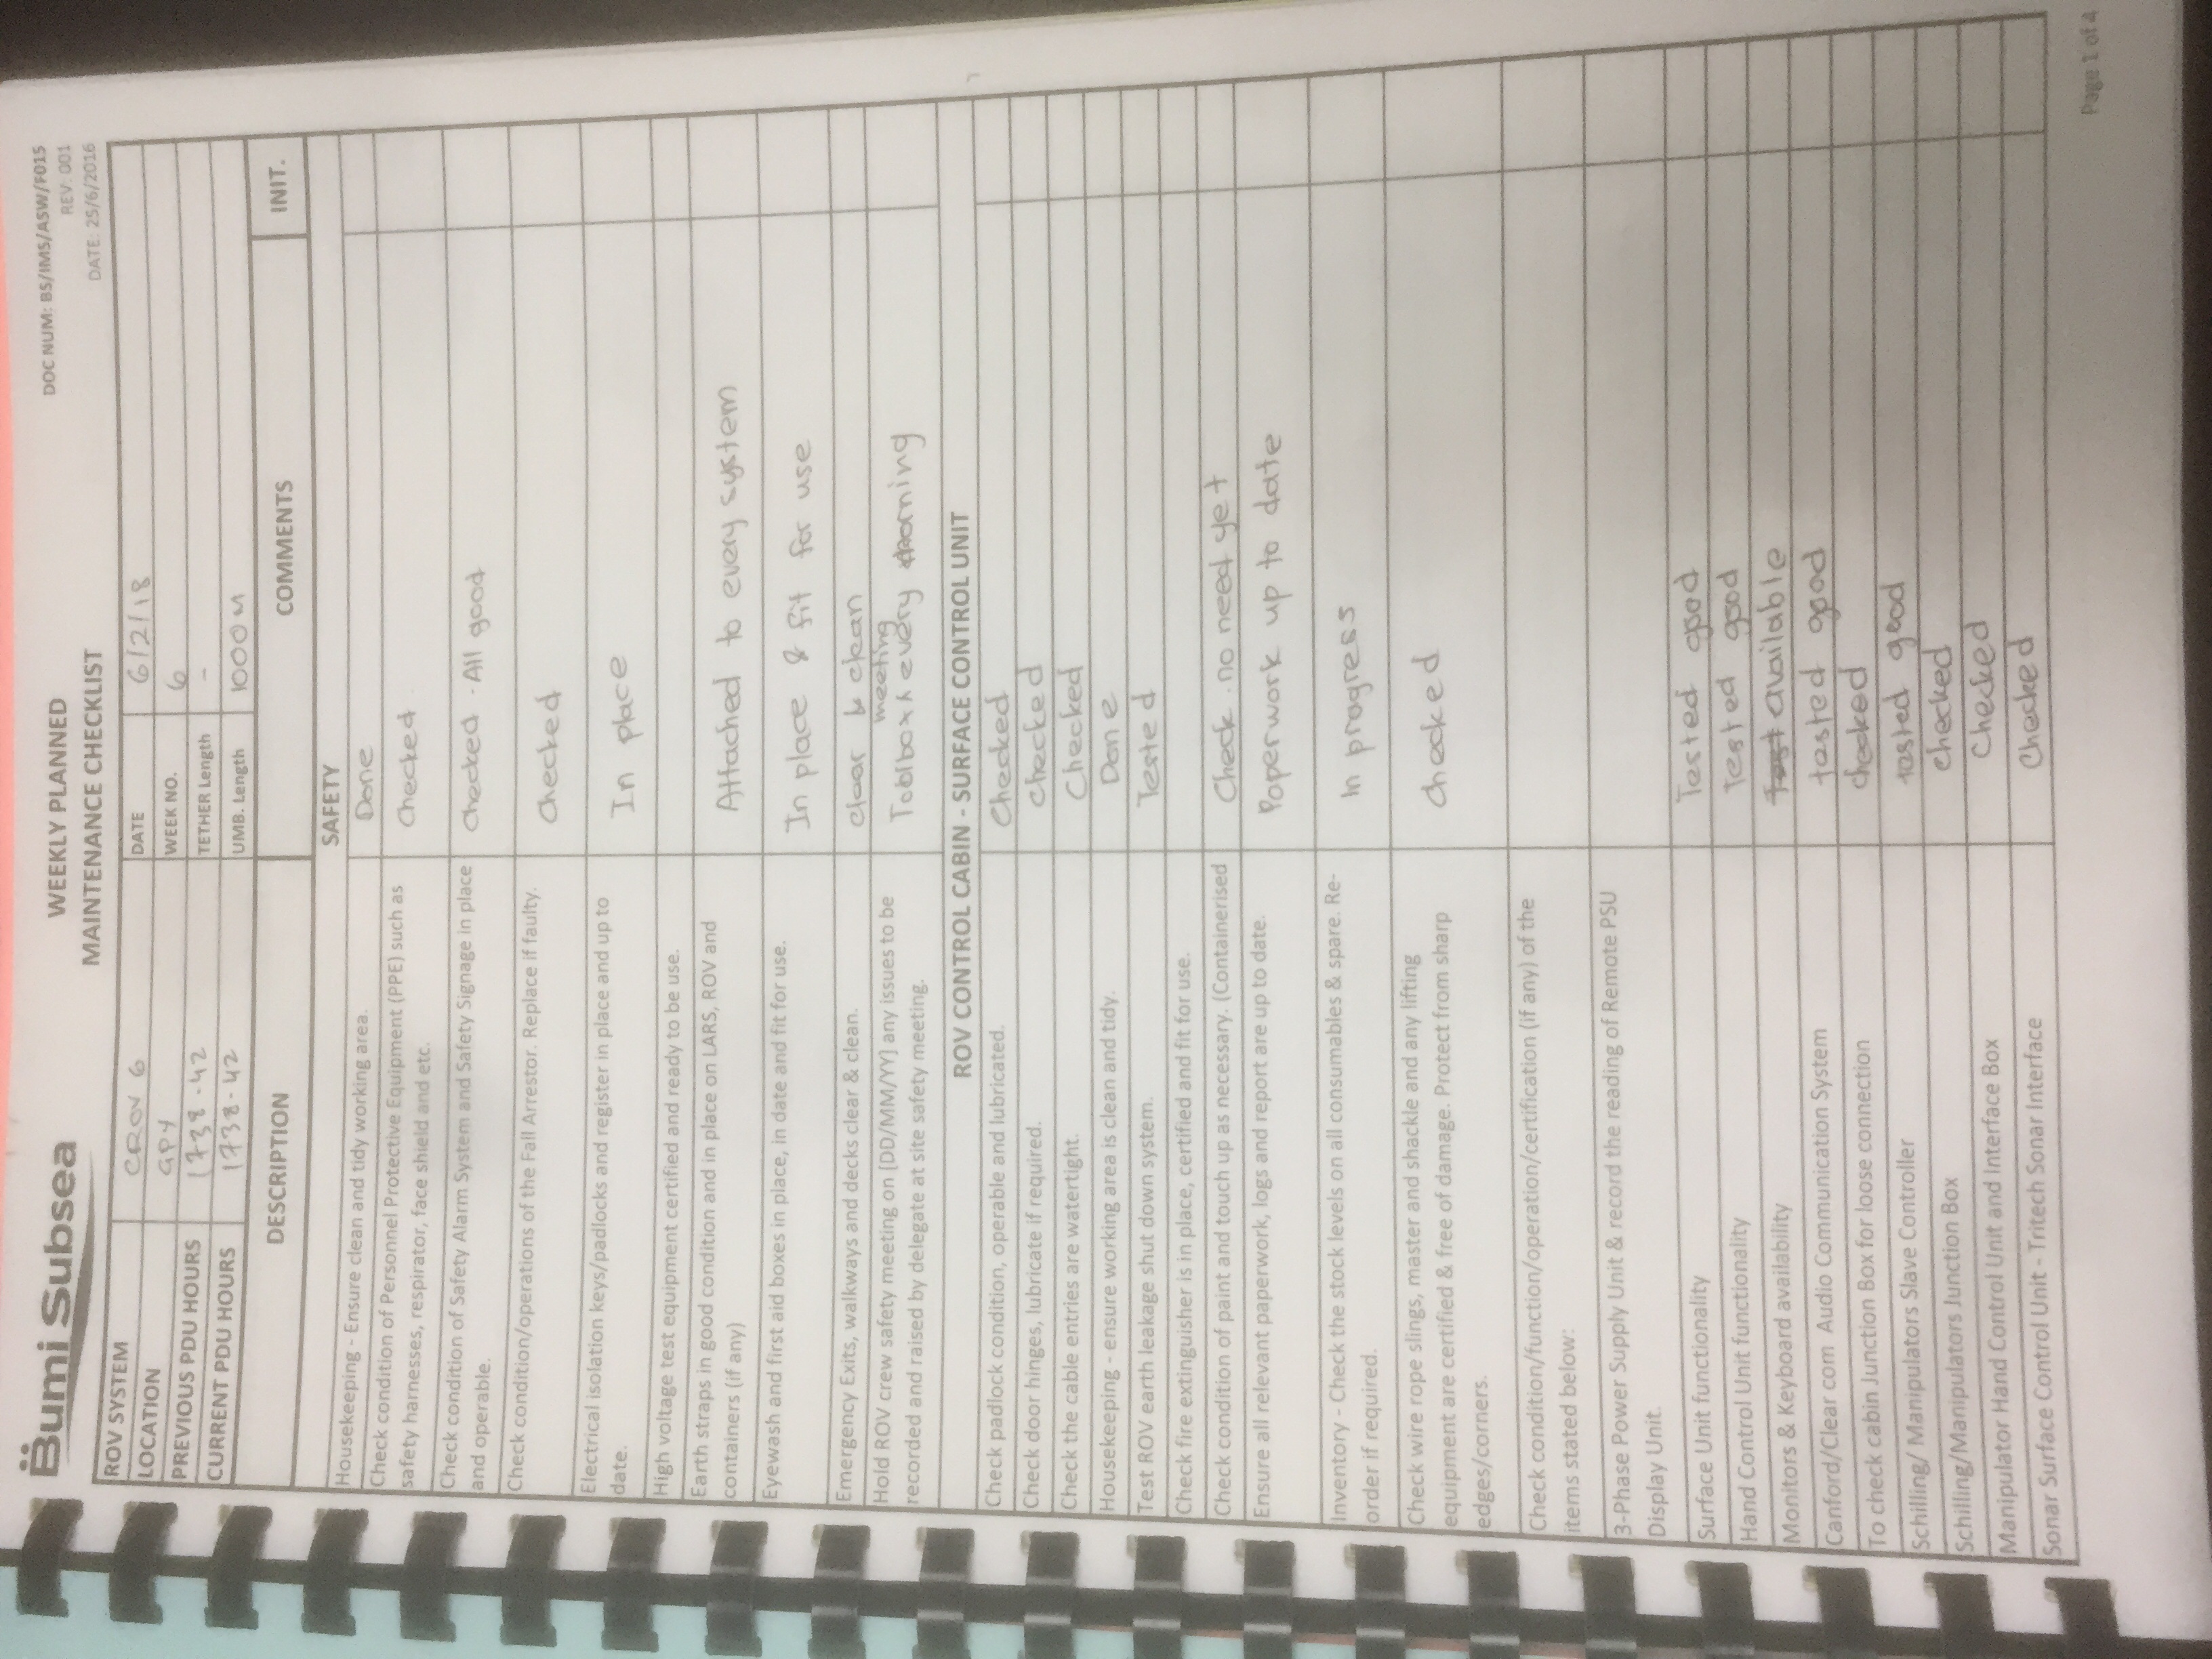 Bumi Subsea
WEEKLY PLANNED
MAINTENANCE CHECKLIST
DOC NUM: BS/IMS/ASW/F015
REV: 001
DATE: 25/6/2016
ROV SYSTEM CROV 6 DATE 6/2/18
LOCATION GPY WEEK NO. 6
PREVIOUS PDU HOURS 1738-42 TETHER Length -
CURRENT PDU HOURS 1738-42 UMB. Length 1000M
DESCRIPTION COMMENTS INIT.
SAFETY
Housekeeping - Ensure clean and tidy working area. Done
Check condition of Personnel Protective Equipment (PPE) such as
safety harnesses, respirator, face shield and etc.
Checked
Check condition of Safety Alarm System and Safety Signage in place
and operable.
Checked - All good
Check condition/operations of the Fall Arrestor. Replace if faulty.
Checked
Electrical isolation keys/padlocks and register in place and up to
date.
In place
High voltage test equipment certified and ready to be use.
Earth straps in good condition and in place on LARS, ROV and
containers (if any)
Attached to every system
Eyewash and first aid boxes in place, in date and fit for use.
In place & fit for use
Emergency Exits, walkways and decks clear & clean. clear & clean
Hold ROV crew safety meeting on [DD/MM/YY] any issues to be
recorded and raised by delegate at site safety meeting.
meeting
Toolbox ^ every morning
ROV CONTROL CABIN - SURFACE CONTROL UNIT
Check padlock condition, operable and lubricated. Checked
Check door hinges, lubricate if required. checked
Check the cable entries are watertight. Checked
Housekeeping - ensure working area is clean and tidy. Done
Test ROV earth leakage shut down system. Tested
Check fire extinguisher is in place, certified and fit for use.
Check condition of paint and touch up as necessary. (Containerised Check . no need yet
Ensure all relevant paperwork, logs and report are up to date. Paperwork up to date
Inventory - Check the stock levels on all consumables & spare. Re-
order if required.
In progress
Check wire rope slings, master and shackle and any lifting
equipment are certified & free of damage. Protect from sharp
edges/corners.
Checked
Check condition/function/operation/certification (if any) of the
items stated below:
3-Phase Power Supply Unit & record the reading of Remote PSU
Display Unit.
Surface Unit functionality Tested good
Hand Control Unit functionality Tested good
Monitors & Keyboard availability Test available
Canford/Clear com Audio Communication System tested good
To check cabin Junction Box for loose connection checked
Schilling/ Manipulators Slave Controller tested good
Schilling/Manipulators Junction Box checked
Manipulator Hand Control Unit and Interface Box Checked
Sonar Surface Control Unit - Tritech Sonar Interface Checked
Page 1 of 4